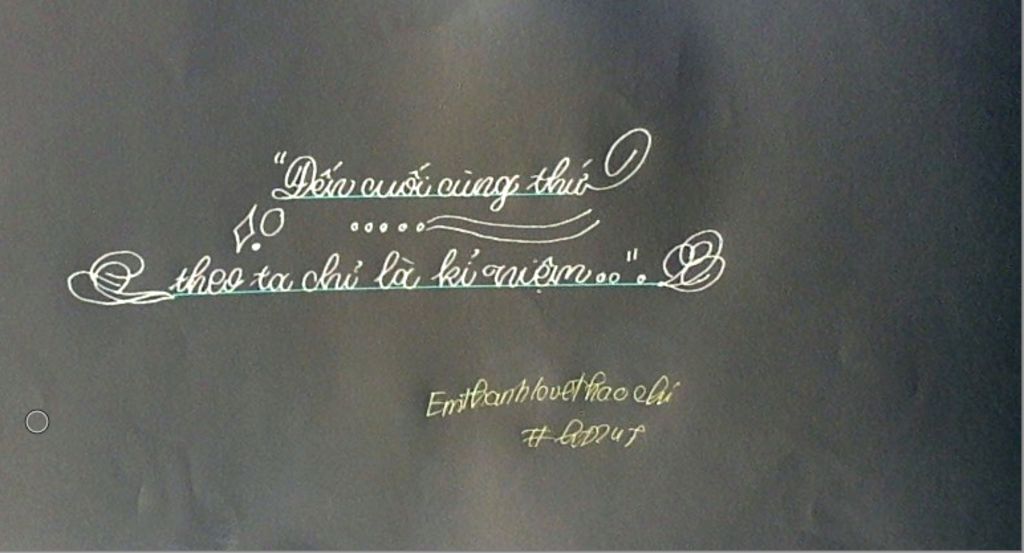 "Đến cuối cùng thứ
theo ta chỉ là kỉ niệm..".
EmthanhloveThaochi